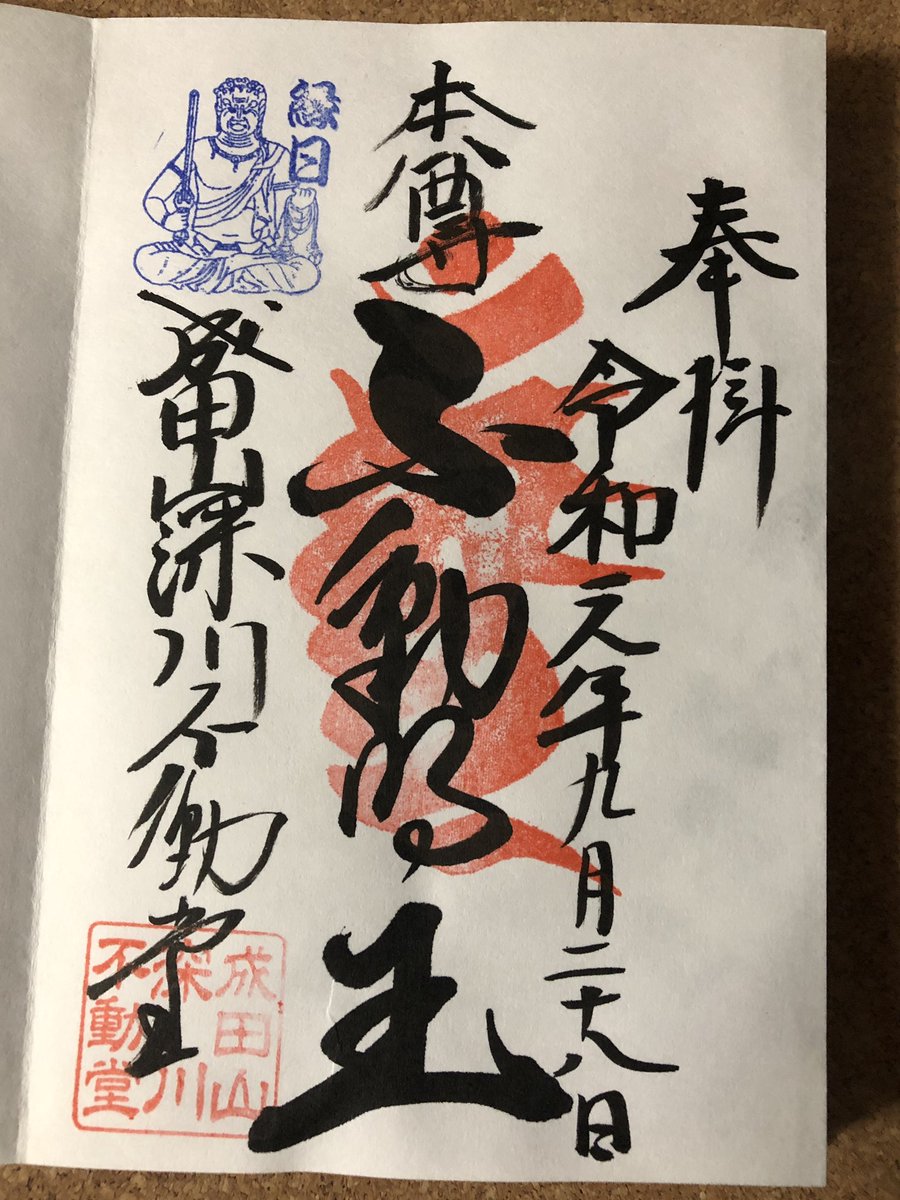 奉拝
令和元年九月二十八日
本尊
不動明王
縁日
成田山深川不動堂
成田山
深川
不動堂